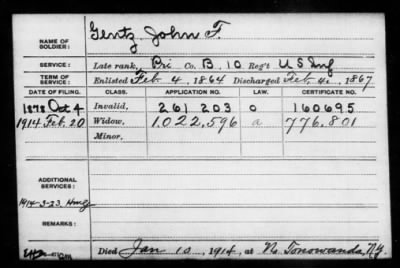 NAME OF SOLDIER: Gentz, John F.
SERVICE: Late rank, Pri Co. B, 10 Reg't U S Inf
TERM OF SERVICE: Enlisted Feb 4, 1864 Discharged Feb 4, 1867
DATE OF FILING. CLASS. APPLICATION NO. LAW. CERTIFICATE NO.
1878 Oct 4 Invalid, 261 203 O 160695
1914 Feb. 20 Widow, 1.022.596 a 776.801
Minor,
ADDITIONAL SERVICES:
1914-3-23.
REMARKS:
Died Jan 10, 1914, at N. Tonowanda, N.Y.